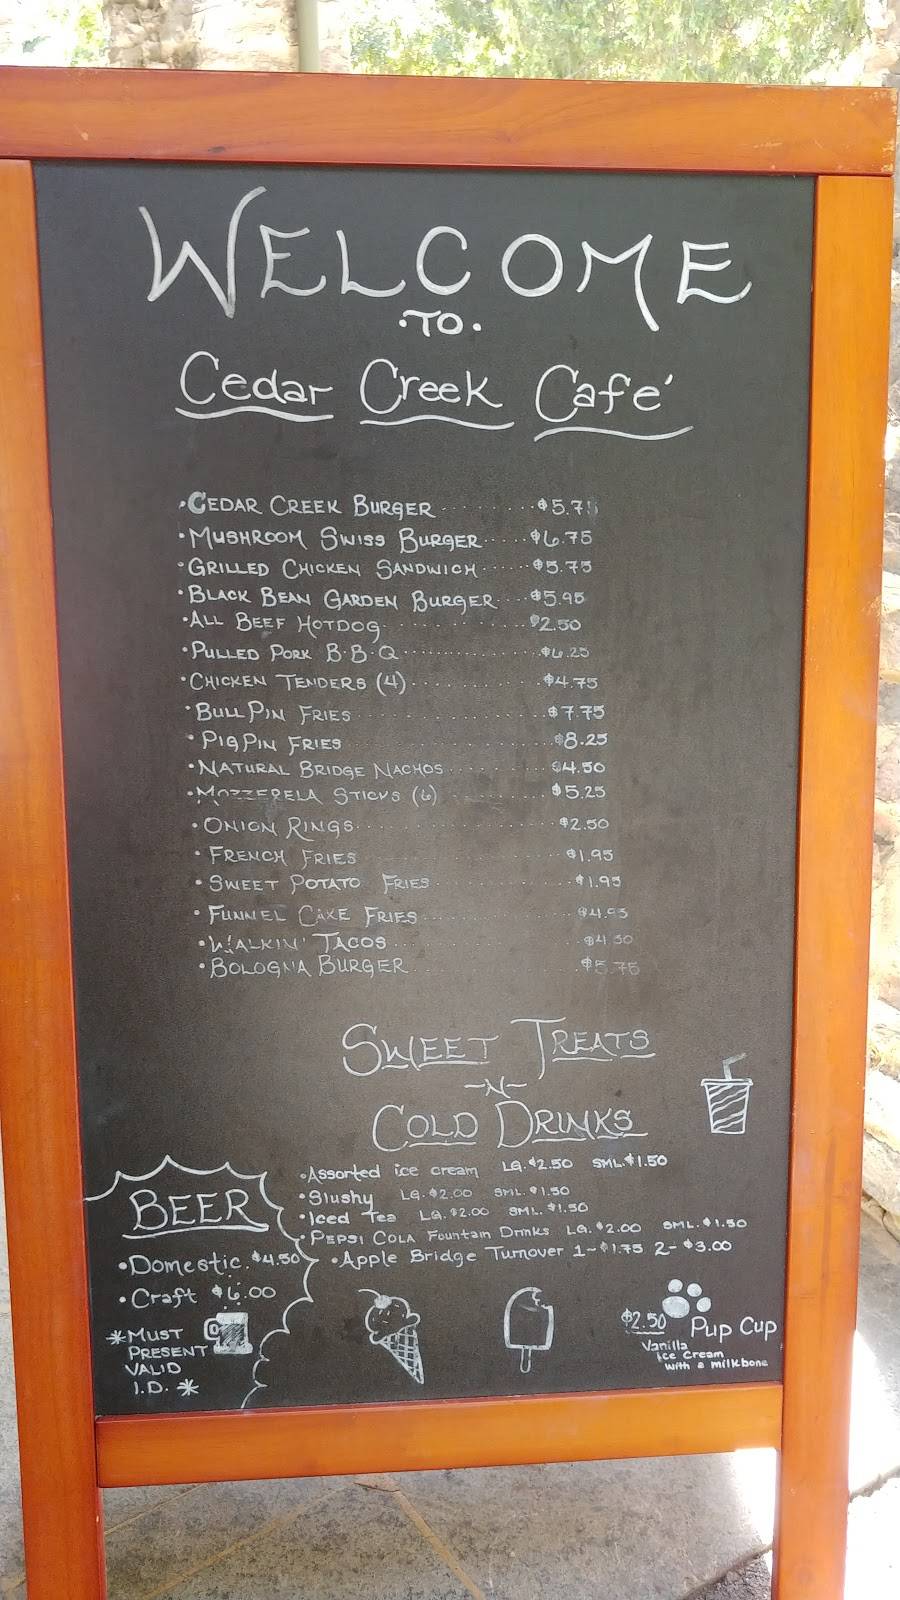 WELCOME
·TO·
Cedar Creek Café
·CEDAR CREEK BURGER ········ $5.75
·MUSHROOM SWISS BURGER ····· $6.75
·GRILLED CHICKEN SANDWICH ······ $5.75
·BLACK BEAN GARDEN BURGER ···· $5.95
·ALL BEEF HOTDOG ············ $2.50
·PULLED PORK B·B·Q ·············· $6.25
·CHICKEN TENDERS (4) ············ $4.75
·BULL PIN FRIES ·············· $7.75
·PIG PIN FRIES ·············· $8.25
·NATURAL BRIDGE NACHOS ········· $4.50
·MOZZERELA STICKS (6) ·········· $5.25
·ONION RINGS ················ $2.50
·FRENCH FRIES ················ $1.95
·SWEET POTATO FRIES ············ $1.95
·FUNNEL CAKE FRIES ············ $4.95
·WALKIN' TACOS ·············· $4.50
·BOLOGNA BURGER ·············· $5.75
SWEET TREATS
-N-
COLD DRINKS
·Assorted ice cream LG. $2.50 SML. $1.50
·Slushy LG. $2.00 SML. $1.50
·Iced Tea LG. $2.00 SML. $1.50
·PEPSI COLA Fountain Drinks LG. $2.00 SML. $1.50
·Apple Bridge Turnover 1-$1.75 2-$3.00
BEER
·Domestic. $4.50
·Craft $6.00
*MUST
PRESENT
VALID
I.D. *
$2.50 Pup Cup
Vanilla
ice cream
with a milkbone